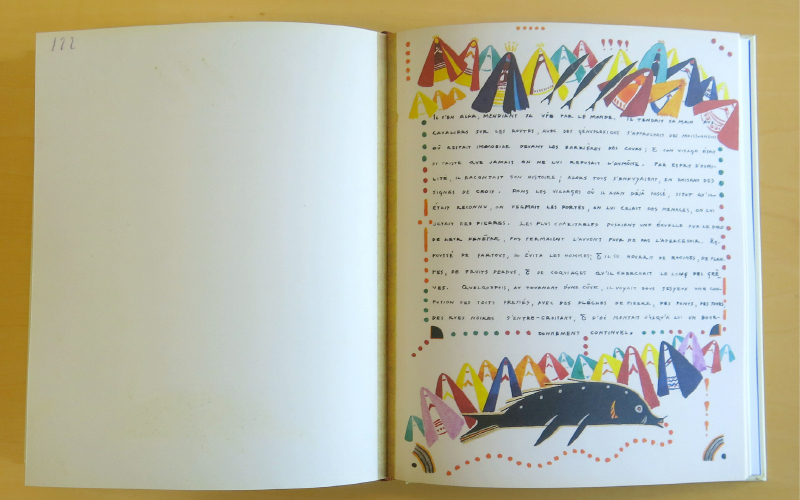 122
IL S'EN ALLA, MENDIANT SA VIE PAR LE MONDE. IL TENDAIT SA MAIN AUX
CAVALIERS SUR LES ROUTES, AVEC DES GÉNUFLEXIONS S'APPROCHAIT DES MOISSONNEURS
OÙ RESTAIT IMMOBILE DEVANT LES BARRIÈRES DES COURS; & SON VISAGE ÉTAIT
SI TRISTE QUE JAMAIS ON NE LUI REFUSAIT L'AUMÔNE. PAR ESPRIT D'HUMI-
LITÉ, IL RACONTAIT SON HISTOIRE; ALORS TOUS S'ENFUYAIENT, EN FAISANT DES
SIGNES DE CROIX. DANS LES VILLAGES OÙ IL AVAIT DÉJÀ PASSÉ, SITÔT QU'IL
ÉTAIT RECONNU, ON FERMAIT LES PORTES, ON LUI CRIAIT DES MENACES, ON LUI
JETAIT DES PIERRES. LES PLUS CHARITABLES POSAIENT UNE ÉCUELLE SUR LE BORD
DE LEUR FENÊTRE, PUIS FERMAIENT L'AUVENT POUR NE PAS L'APERCEVOIR. RE-
POUSSÉ DE PARTOUT, IL ÉVITA LES HOMMES; & IL SE NOURRIT DE RACINES, DE PLAN-
TES, DE FRUITS PERDUS, & DE COQUILLAGES QU'IL CHERCHAIT LE LONG DES GRÈ-
VES. QUELQUEFOIS, AU TOURNANT D'UNE CÔTE, IL VOYAIT SOUS SES YEUX UNE CON-
FUSION DES TOITS PRESSÉS, AVEC DES FLÈCHES DE PIERRE, DES PONTS, DES TOURS
DES RUES NOIRES S'ENTRE-CROISANT, & D'OÙ MONTAIT JUSQU'À LUI UN BOUR-
DONNEMENT CONTINUEL.